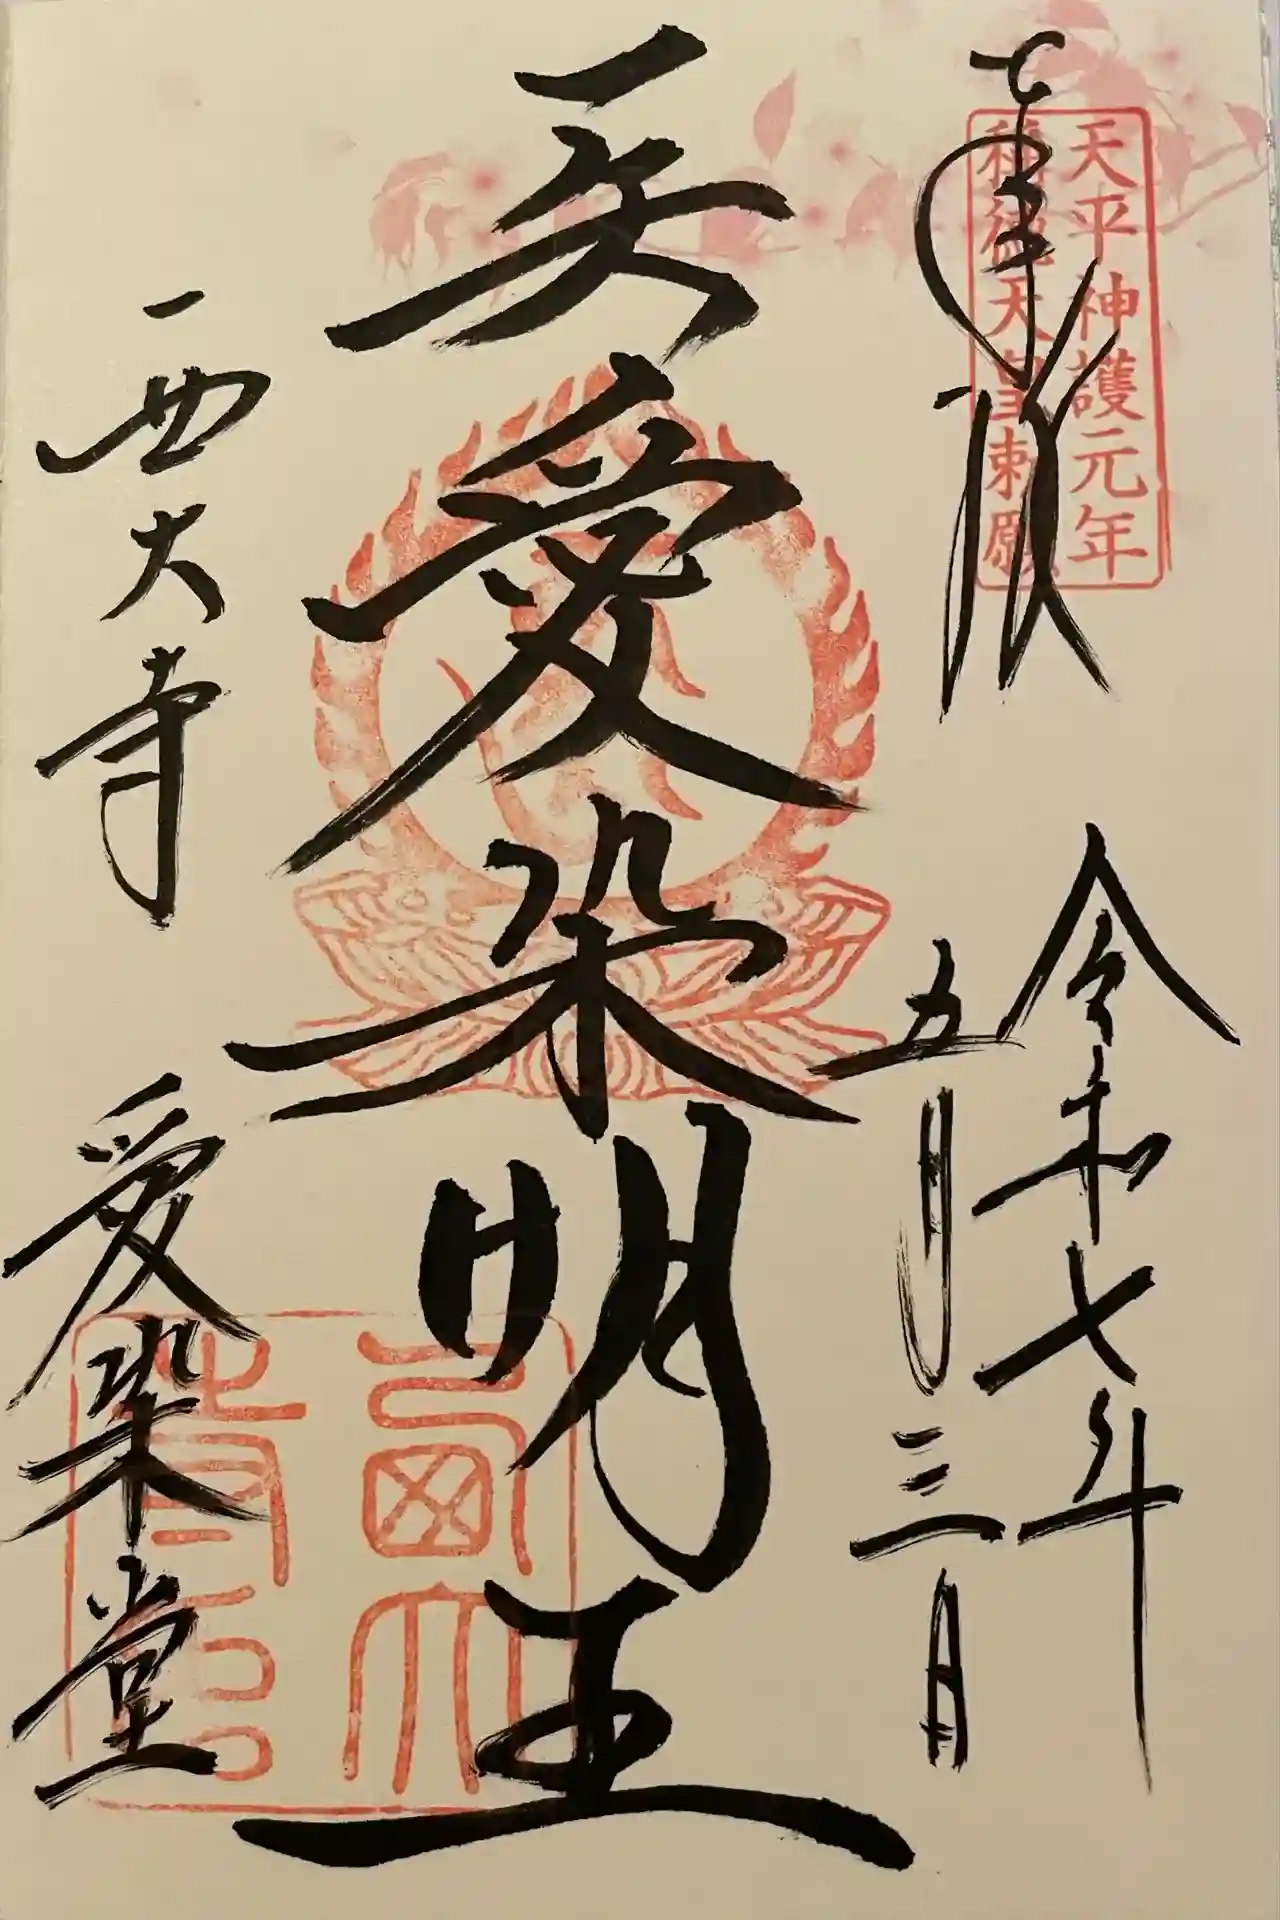 奉拝
天平神護元年
稱徳天皇勅願
令和七年
五月三日
愛染明王
西大寺
愛染堂
西大
寺印